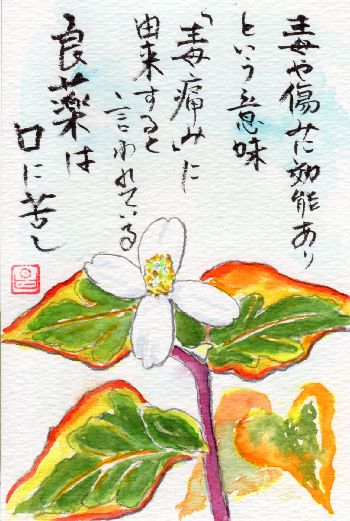 毒や傷みに効能あり
という意味
「毒痛み」に
由来すると
言われている
良薬は
口に苦し